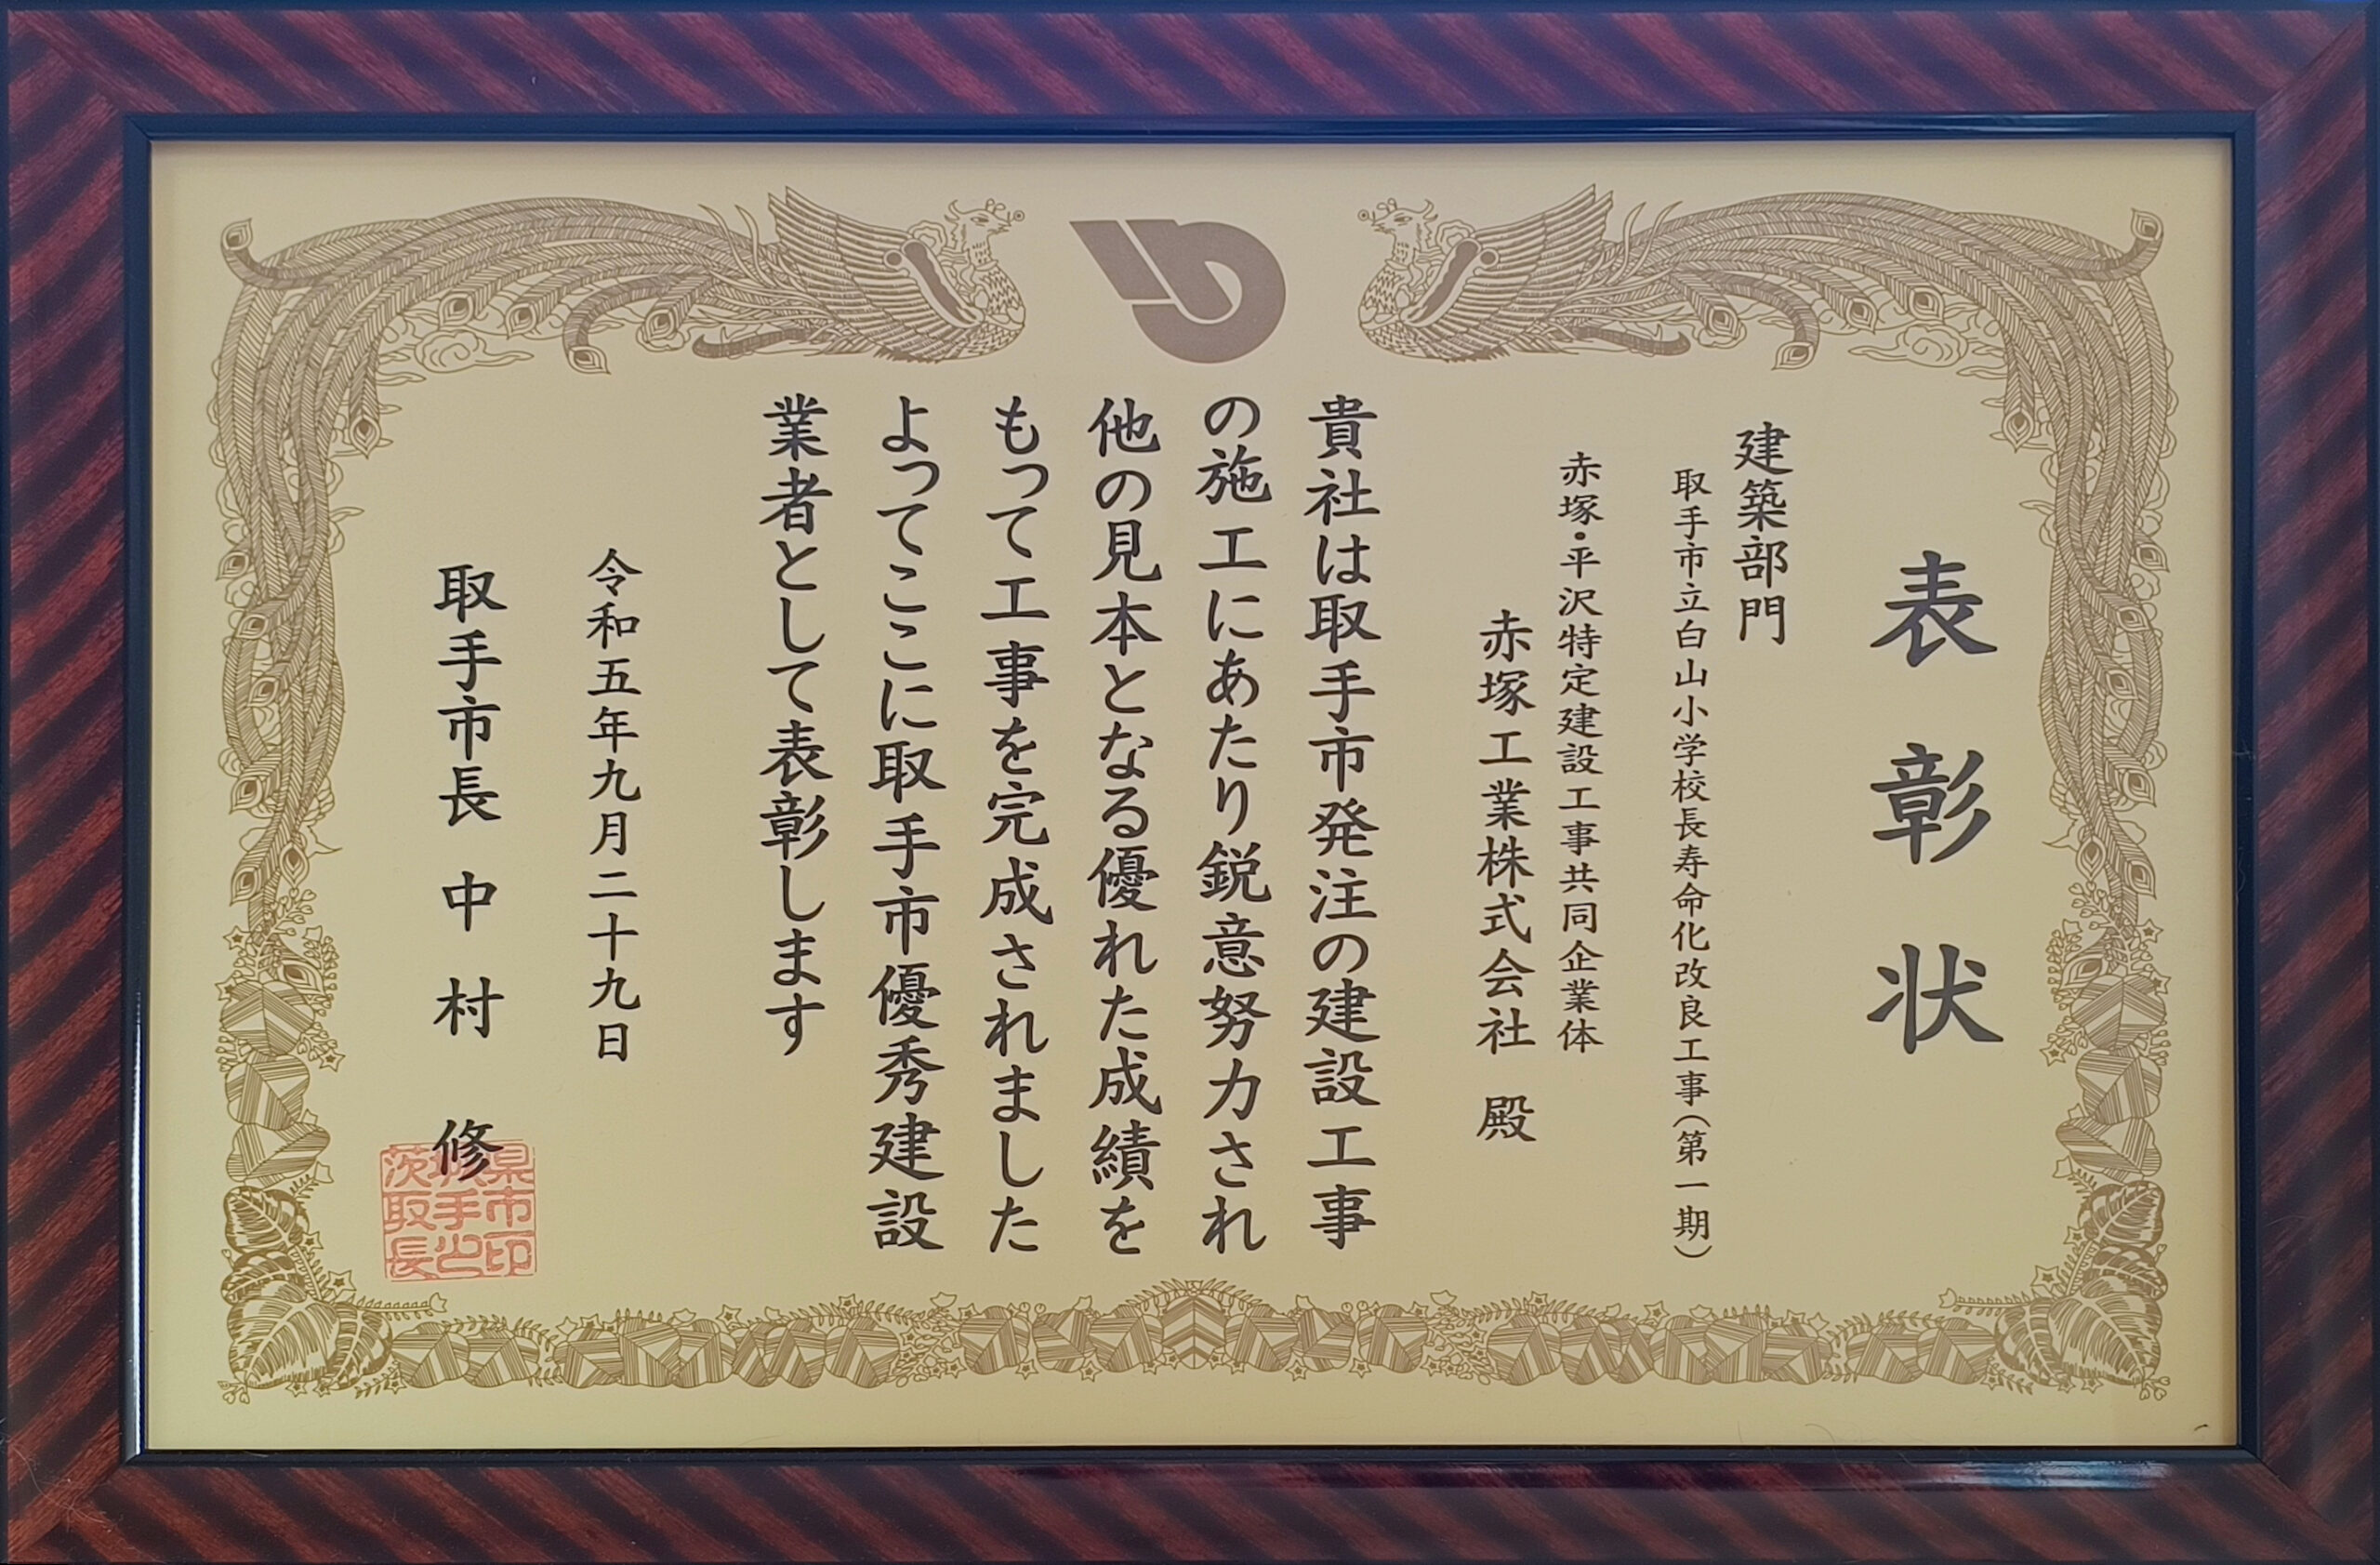 表彰状
建築部門
取手市立白山小学校長寿命化改良工事(第一期)
赤塚・平沢特定建設工事共同企業体
赤塚工業株式会社 殿
貴社は取手市発注の建設工事
の施工にあたり鋭意努力され
他の見本となる優れた成績を
もって工事を完成されました
よってここに取手市優秀建設
業者として表彰します
令和五年九月二十九日
取手市長 中村 修
茨城県
取手市
長之印